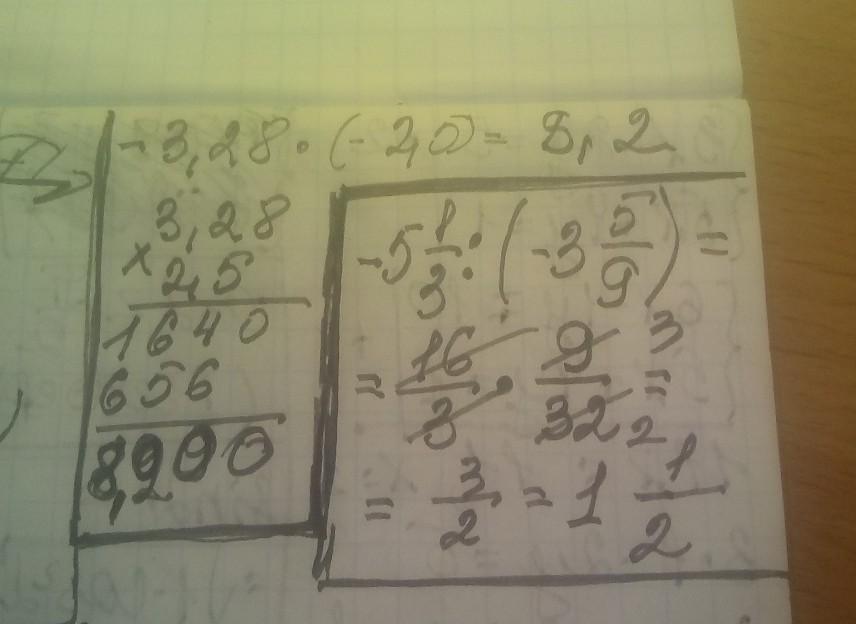 -3,28 · (-2,5) = 8,2
3,28
× 2,5
1640
656
8,200
-5 1/3 : (-3 5/9) =
= 16/3 · 9/32 3 2 =
= 3/2 = 1 1/2